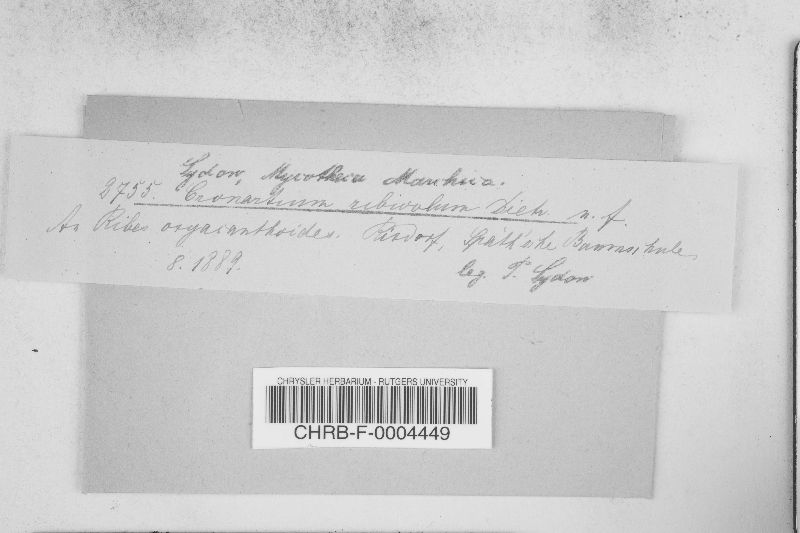 Sydow, Mycotheca Marchica.
2755. Cronartium ribicolum Dietr. n. f.
An Ribes oxyacanthoides. Rixdorf, Späth'sche Baumschule,
8. 1889.
leg. P. Sydow
CHRYSLER HERBARIUM - RUTGERS UNIVERSITY
CHRB-F-0004449